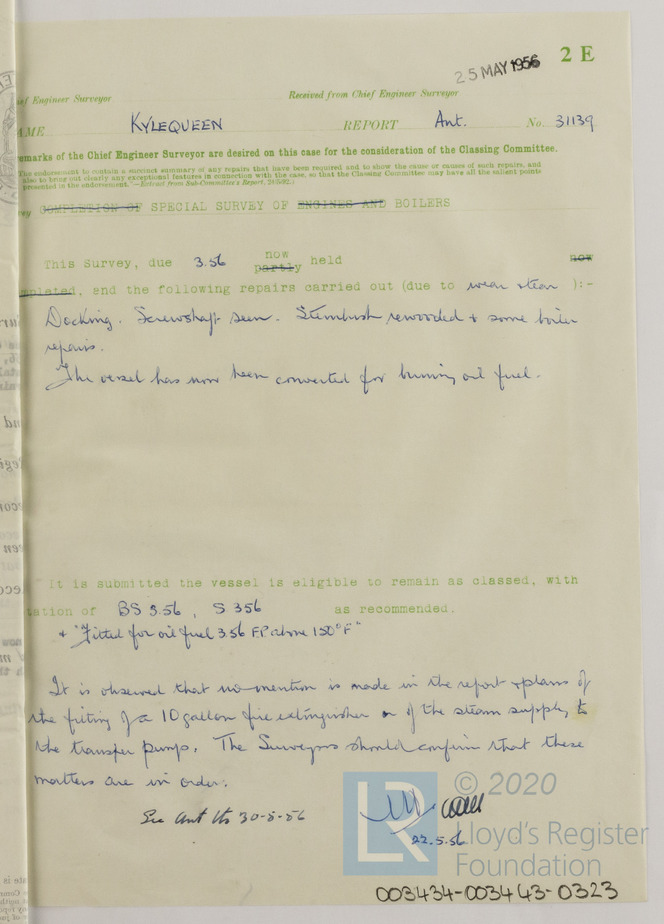 25 MAY 1956
2 E
ief Engineer Surveyor
Received from Chief Engineer Surveyor
AME KYLEQUEEN REPORT Ant. No. 31139
emarks of the Chief Engineer Surveyor are desired on this case for the consideration of the Classing Committee.
The endorsement to contain a succinct summary of any repairs that have been required and to show the cause or causes of such repairs, and
also to bring out clearly any exceptional features in connection with the case, so that the Classing Committee may have all the salient points
presented in the endorsement."—Extract from Sub-Committee's Report,
vey COMPLETION OF SPECIAL SURVEY OF ENGINES AND BOILERS
now
This Survey, due 3.56 partly held now
mpleted, and the following repairs carried out (due to wear & tear ):-
Docking. Screwshaft seen. Sternbush rewooded & some boiler
repairs.
The vessel has now been converted for burning oil fuel.
It is submitted the vessel is eligible to remain as classed, with
tation of BS 3.56, S 3.56 as recommended.
& "Fitted for oil fuel 3.56 F.P. above 150°F"
It is observed that no mention is made in the report & plans of
the fitting of a 10 gallon fire extinguisher or of the steam supply to
the transfer pump. The Surveyors should confirm that these
matters are in order.
See Ant 30-8-56
22.5.56
LR
© 2020
Lloyd's Register
Foundation
003434-003443-0323